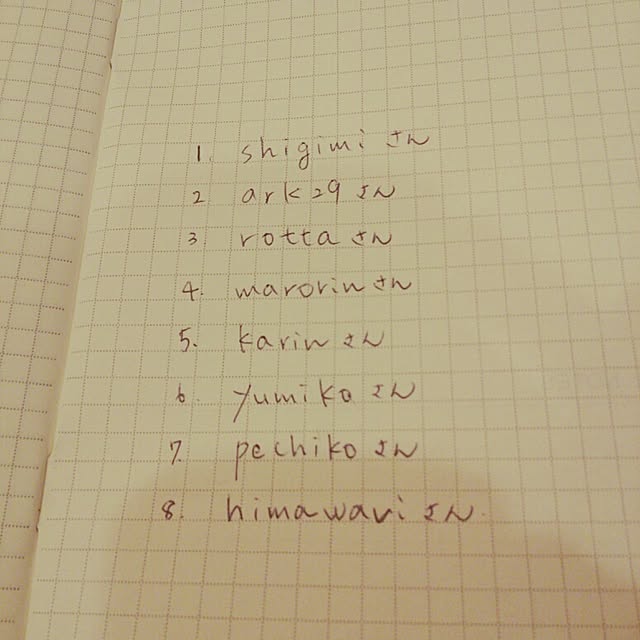 1. shigimi さん
2 ark29 さん
3 rotta さん
4. marorin さん
5. karin さん
6. yumiko さん
7. pechiko さん
8. himawari さん